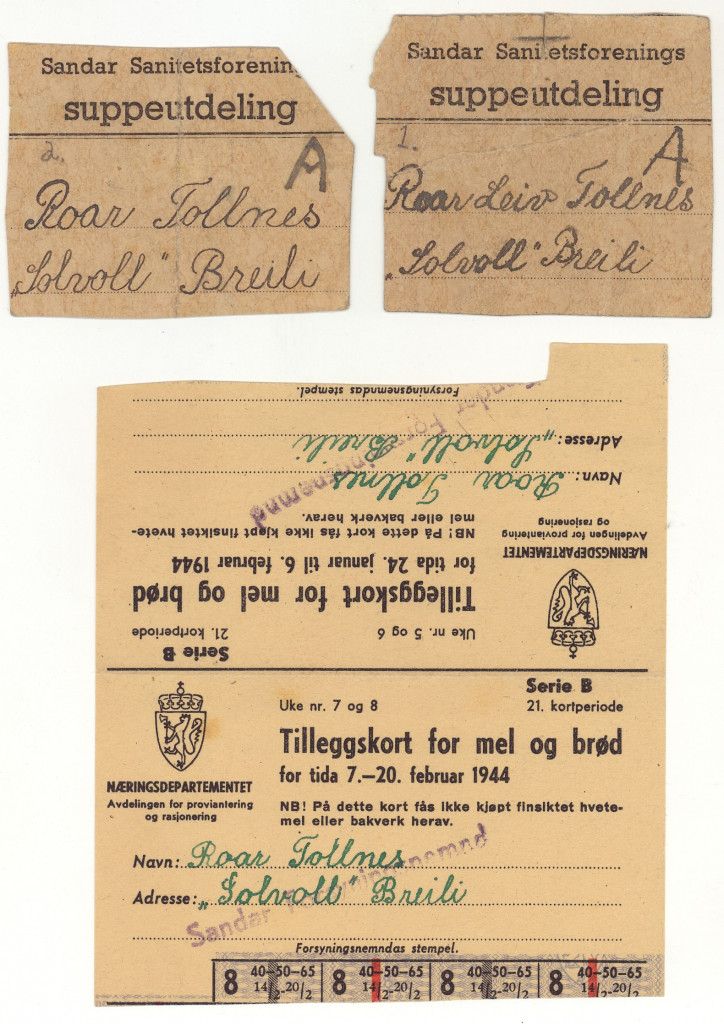 Sandar Sanitetsforening
suppeutdeling
2. A
Roar Tollnes
„Solvoll" Breili
Sandar Sanitetsforenings
suppeutdeling
1. A
Roar Leiv Tollnes
„Solvoll" Breili
Serie B
Uke nr. 5 og 6 21. kortperiode
Tilleggskort for mel og brød
for tida 24. januar til 6. februar 1944
NÆRINGSDEPARTEMENTET
Avdelingen for proviantering
og rasjonering
NB! På dette kort fås ikke kjøpt finsiktet hvete-
mel eller bakverk herav.
Navn: Roar Tollnes
Adresse: „Solvoll" Breili
Sandar Forsyningsnemnd
Forsyningsnemndas stempel.
Serie B
Uke nr. 7 og 8 21. kortperiode
Tilleggskort for mel og brød
for tida 7.—20. februar 1944
NÆRINGSDEPARTEMENTET
Avdelingen for proviantering
og rasjonering
NB! På dette kort fås ikke kjøpt finsiktet hvete-
mel eller bakverk herav.
Navn: Roar Tollnes
Adresse: „Solvoll" Breili
Sandar Forsyningsnemnd
Forsyningsnemndas stempel.
8 40—50—65 8 40—50—65 8 40—50—65 8 40—50—65
14/2-20/2 14/2-20/2 14/2-20/2 14/2-20/2